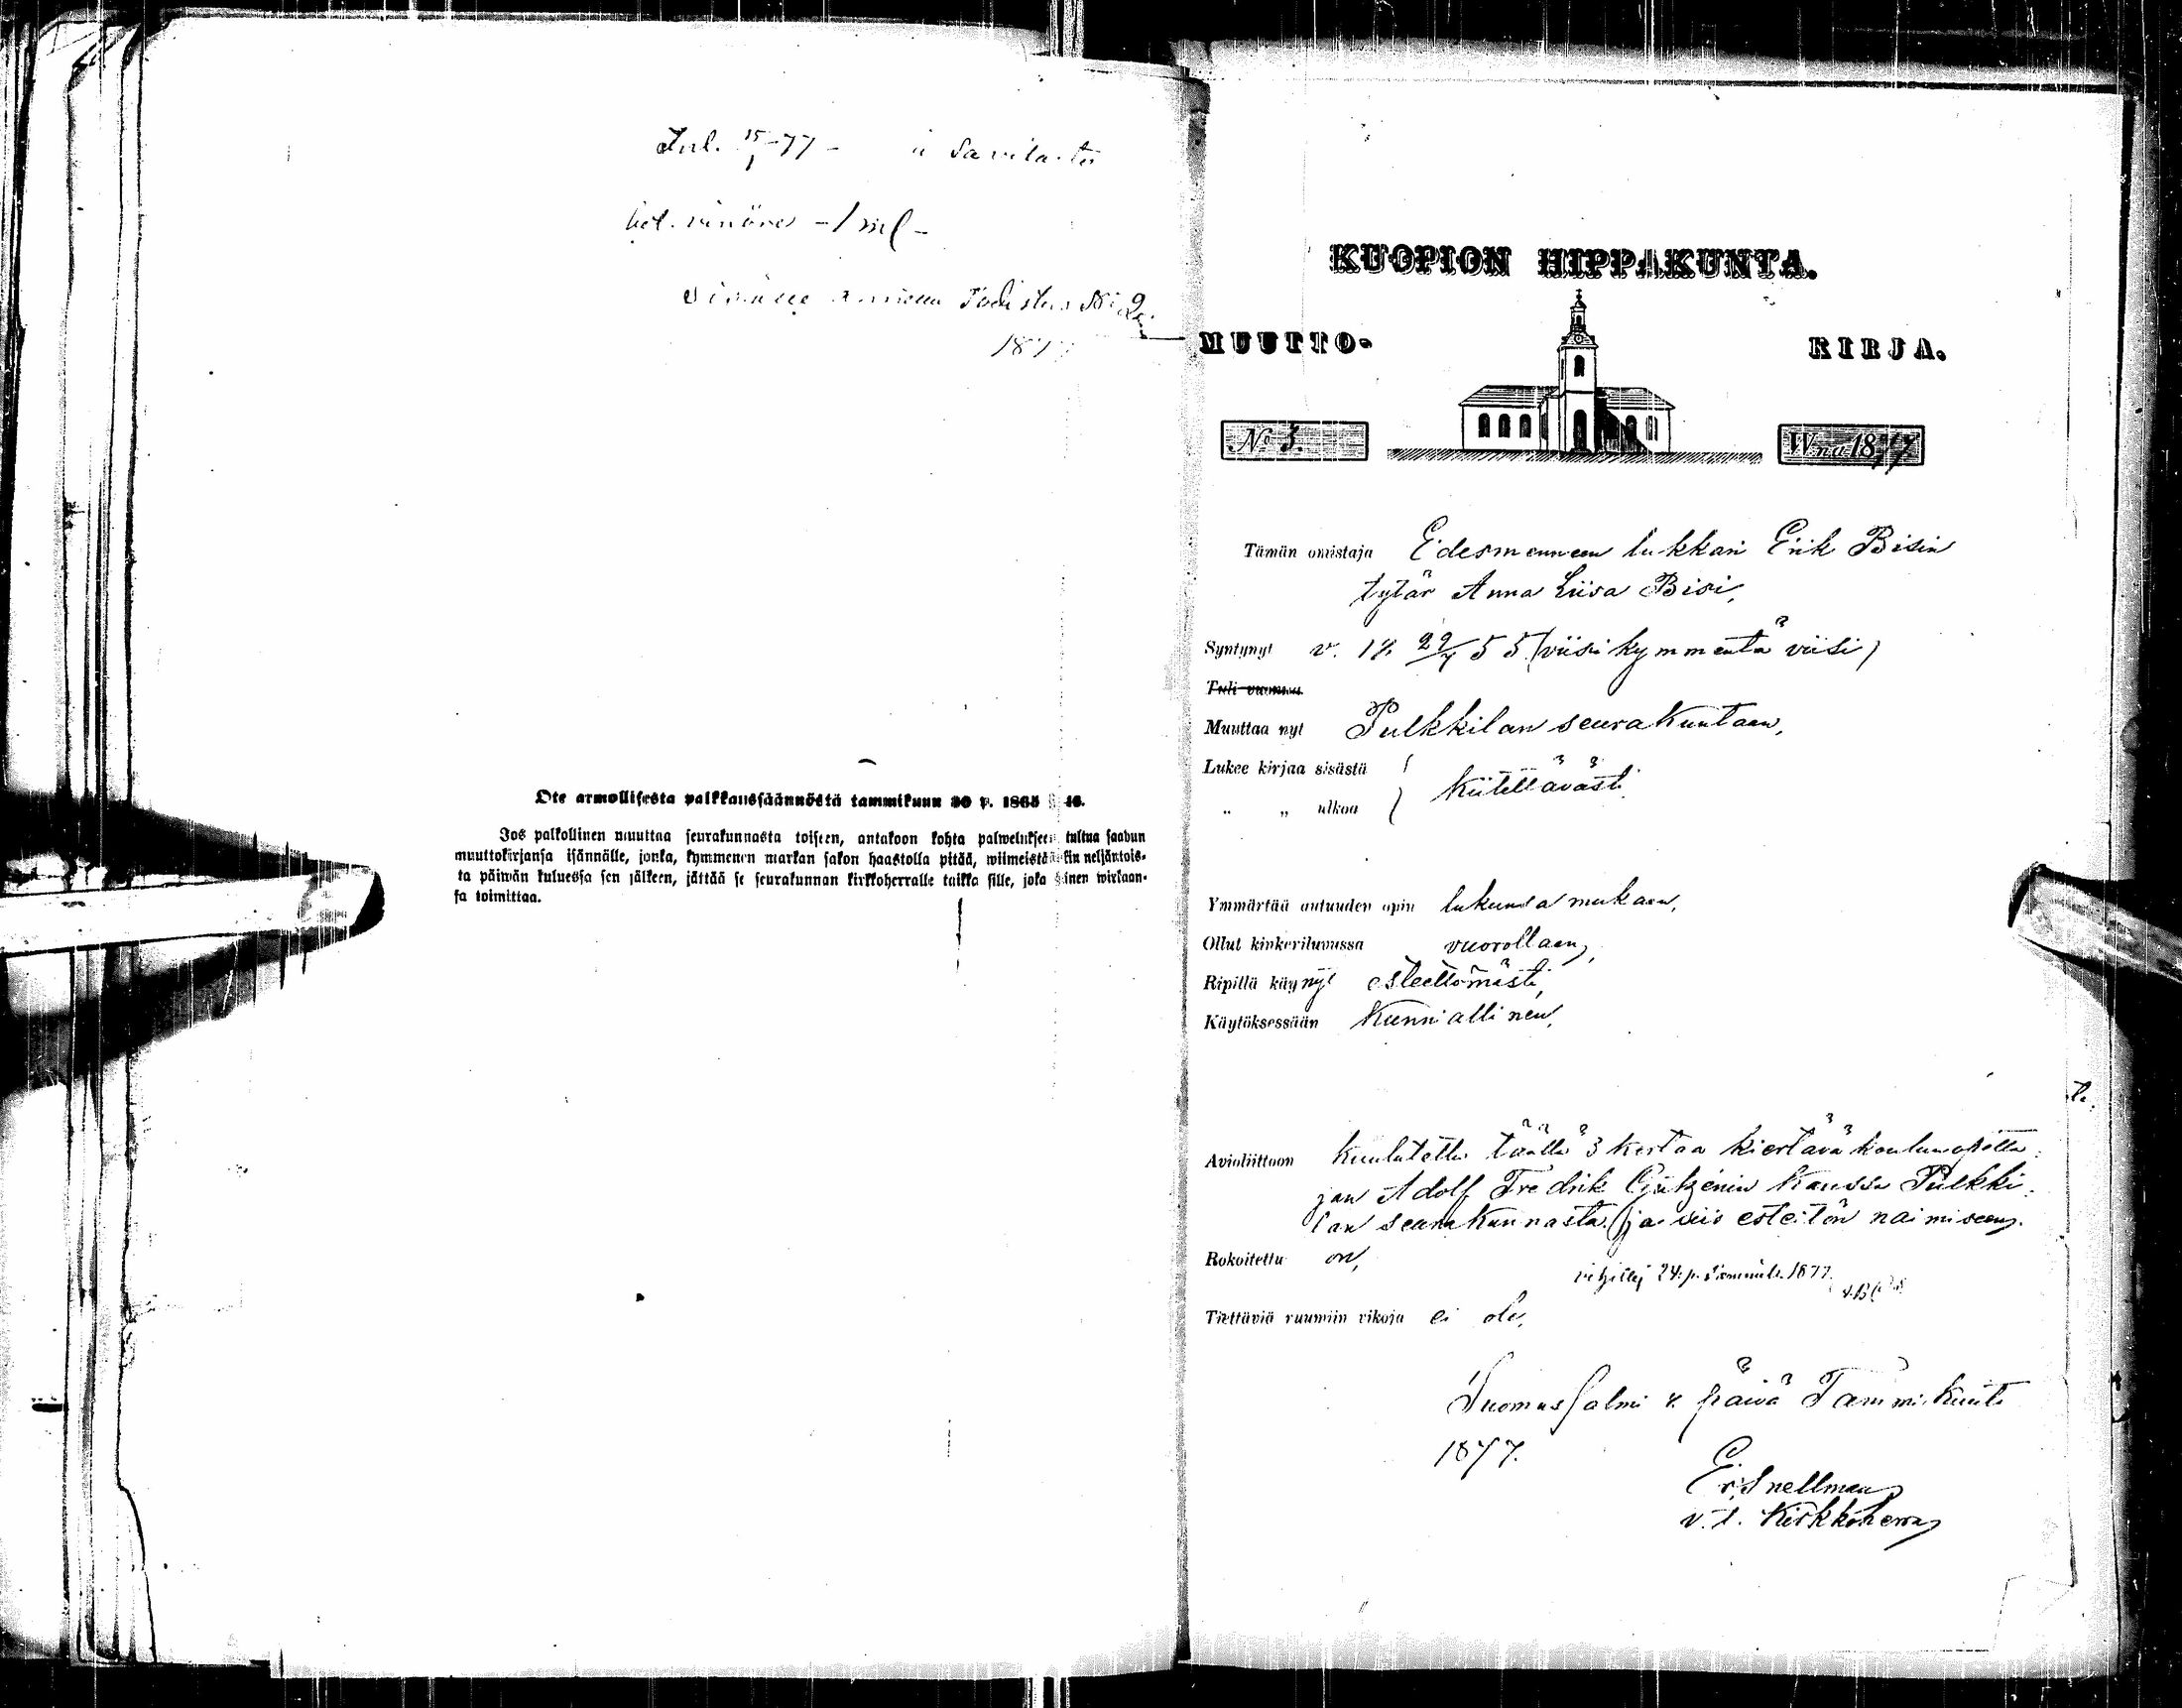 Tul. 15/1 -77 -
1 ml -
Todistus No 2.
187
Ote armollisesta palkkaussäännöstä tammikuun 30 p. 1865 § 46.
Jos palkollinen muuttaa seurakunnasta toiseen, antakoon kohta palwelukseen tultua saadun
muuttokirjansa isännälle, jonka, kymmenen markan sakon haastolla pitää, wiimeistäänkin neljäntois-
ta päiwän kuluessa sen jälkeen, jättää se seurakunnan kirkkoherralle taikka sille, joka hänen wirkaan-
sa toimittaa.
KUOPION HIPPAKUNTA.
MUUTTO- KIRJA.
No 3. Wna 1877
Tämän omistaja Edesmenneen lukkari Erik Bisin
tytär Anna Liisa Bisi,
Syntynyt v. 18 22/7 55 (viisikymmentä viisi)
Tuli vuonna
Muuttaa nyt Pulkkilan seurakuntaan,
Lukee kirjaa sisästä
„ „ ulkoa } kiitettävästi
Ymmärtää autuuden opin lukunsa mukaan,
Ollut kinkeriluvussa vuorollaan,
Ripillä käynyt esteettömästi,
Käytöksessään kunniallinen,
Avioliittoon kuulutettu täällä 3 kertaa kiertävä koulunopetta-
jan Adolf Fredrik kanssa Pulkki-
lan seurakunnasta (ja siis esteitön naimiseen.
Rokoitettu on,
vihitty 24. p. 1877.
Tiettäviä ruumiin vikoja ei ole,
Suomussalmi 8. päivä Tammikuuta
1877.
Er. Snellman
v. t. Kirkkoherra